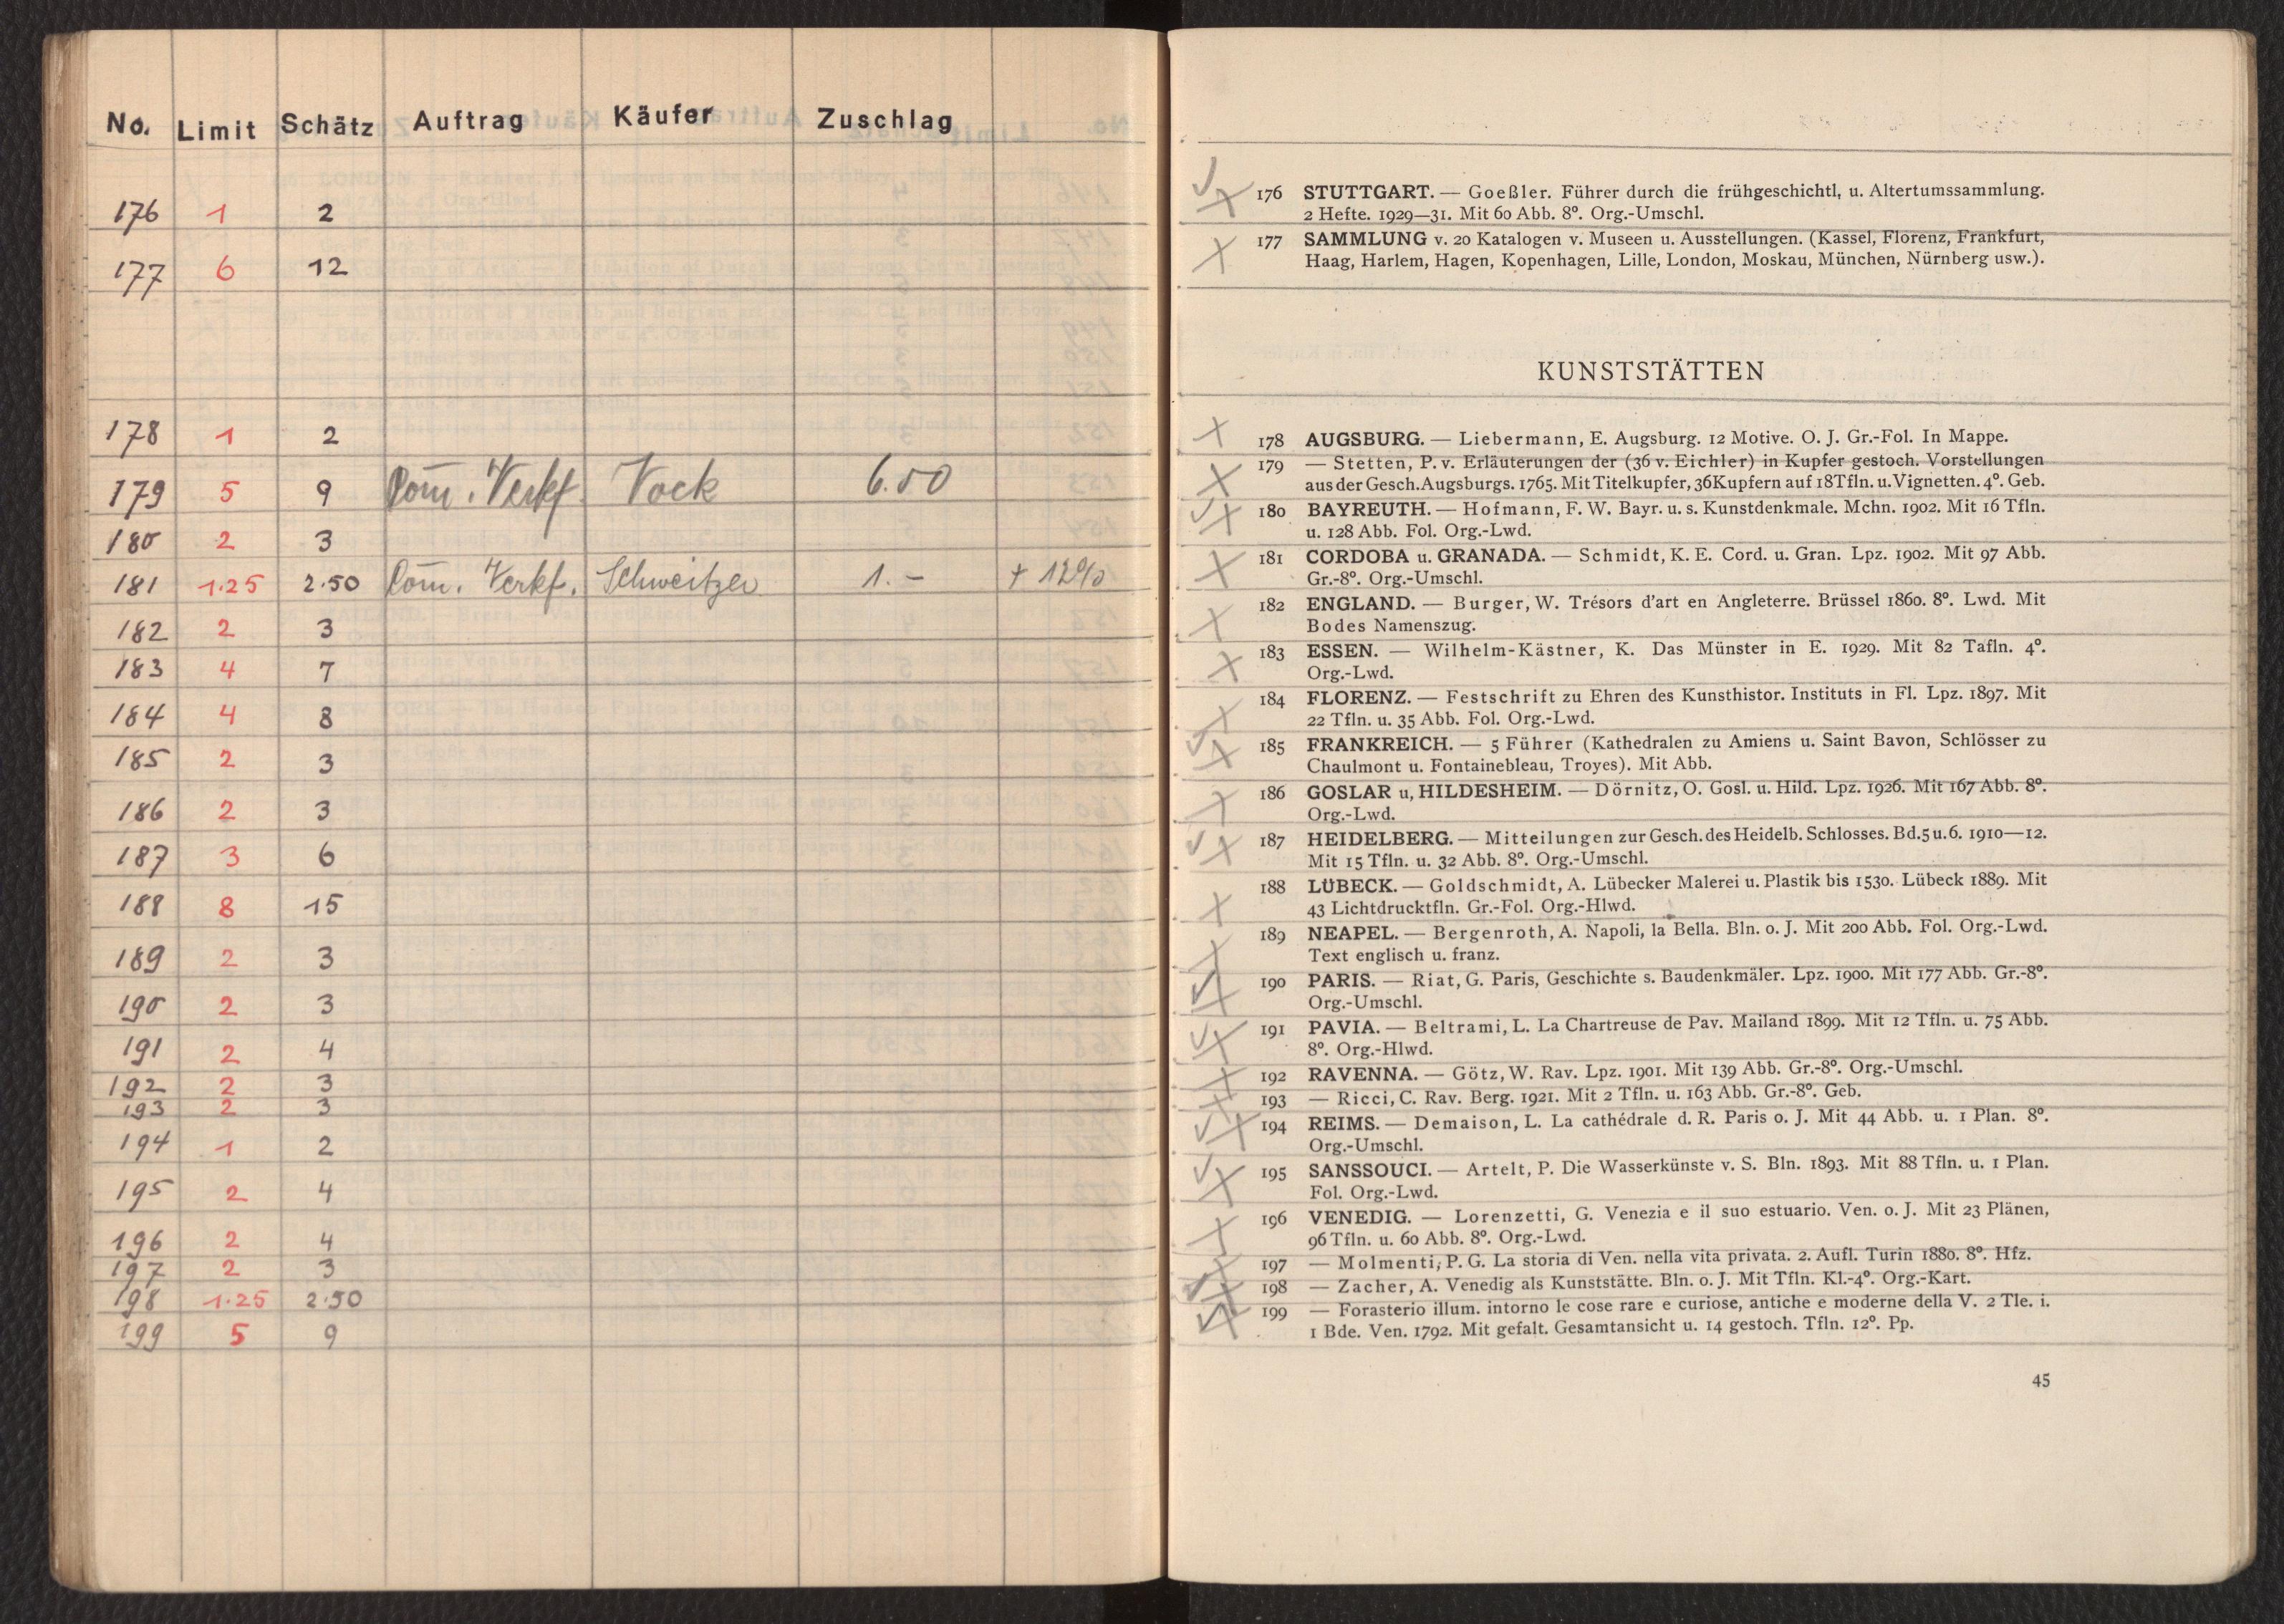 No. Limit Schätz Auftrag Käufer Zuschlag
176 1 2
177 6 12
178 1 2
179 5 9 Com. Verkf. Vock 6.50
180 2 3
181 1.25 2.50 Com. Verkf. Schweitzer 1.- + 12%
182 2 3
183 4 7
184 4 8
185 2 3
186 2 3
187 3 6
188 8 15
189 2 3
190 2 3
191 2 4
192 2 3
193 2 3
194 1 2
195 2 4
196 2 4
197 2 3
198 1.25 2.50
199 5 9
176 STUTTGART. — Goeßler. Führer durch die frühgeschichtl, u. Altertumssammlung.
2 Hefte. 1929—31. Mit 60 Abb. 8°. Org.-Umschl.
177 SAMMLUNG v. 20 Katalogen v. Museen u. Ausstellungen. (Kassel, Florenz, Frankfurt,
Haag, Harlem, Hagen, Kopenhagen, Lille, London, Moskau, München, Nürnberg usw.).
KUNSTSTÄTTEN
178 AUGSBURG. — Liebermann, E. Augsburg. 12 Motive. O. J. Gr.-Fol. In Mappe.
179 — Stetten, P. v. Erläuterungen der (36 v. Eichler) in Kupfer gestoch. Vorstellungen
aus der Gesch. Augsburgs. 1765. Mit Titelkupfer, 36 Kupfern auf 18 Tfln. u. Vignetten. 4°. Geb.
180 BAYREUTH. — Hofmann, F. W. Bayr. u. s. Kunstdenkmale. Mchn. 1902. Mit 16 Tfln.
u. 128 Abb. Fol. Org.-Lwd.
181 CORDOBA u. GRANADA. — Schmidt, K. E. Cord. u. Gran. Lpz. 1902. Mit 97 Abb.
Gr.-8°. Org.-Umschl.
182 ENGLAND. — Burger, W. Trésors d'art en Angleterre. Brüssel 1860. 8°. Lwd. Mit
Bodes Namenszug.
183 ESSEN. — Wilhelm-Kästner, K. Das Münster in E. 1929. Mit 82 Tafln. 4°.
Org.-Lwd.
184 FLORENZ. — Festschrift zu Ehren des Kunsthistor. Instituts in Fl. Lpz. 1897. Mit
22 Tfln. u. 35 Abb. Fol. Org.-Lwd.
185 FRANKREICH. — 5 Führer (Kathedralen zu Amiens u. Saint Bavon, Schlösser zu
Chaulmont u. Fontainebleau, Troyes). Mit Abb.
186 GOSLAR u, HILDESHEIM. — Dörnitz, O. Gosl. u. Hild. Lpz. 1926. Mit 167 Abb. 8°.
Org.-Lwd.
187 HEIDELBERG. — Mitteilungen zur Gesch. des Heidelb. Schlosses. Bd. 5 u. 6. 1910—12.
Mit 15 Tfln. u. 32 Abb. 8°. Org.-Umschl.
188 LÜBECK. — Goldschmidt, A. Lübecker Malerei u. Plastik bis 1530. Lübeck 1889. Mit
43 Lichtdrucktfln. Gr.-Fol. Org.-Hlwd.
189 NEAPEL. — Bergenroth, A. Napoli, la Bella. Bln. o. J. Mit 200 Abb. Fol. Org.-Lwd.
Text englisch u. franz.
190 PARIS. — Riat, G. Paris, Geschichte s. Baudenkmäler. Lpz. 1900. Mit 177 Abb. Gr.-8°.
Org.-Umschl.
191 PAVIA. — Beltrami, L. La Chartreuse de Pav. Mailand 1899. Mit 12 Tfln. u. 75 Abb.
8°. Org.-Hlwd.
192 RAVENNA. — Götz, W. Rav. Lpz. 1901. Mit 139 Abb. Gr.-8°. Org.-Umschl.
193 — Ricci, C. Rav. Berg. 1921. Mit 2 Tfln. u. 163 Abb. Gr.-8°. Geb.
194 REIMS. — Demaison, L. La cathédrale d. R. Paris o. J. Mit 44 Abb. u. 1 Plan. 8°.
Org.-Umschl.
195 SANSSOUCI. — Artelt, P. Die Wasserkünste v. S. Bln. 1893. Mit 88 Tfln. u. 1 Plan.
Fol. Org.-Lwd.
196 VENEDIG. — Lorenzetti, G. Venezia e il suo estuario. Ven. o. J. Mit 23 Plänen,
96 Tfln. u. 60 Abb. 8°. Org.-Lwd.
197 — Molmenti, P. G. La storia di Ven. nella vita privata. 2. Aufl. Turin 1880. 8°. Hfz.
198 — Zacher, A. Venedig als Kunststätte. Bln. o. J. Mit Tfln. Kl.-4°. Org.-Kart.
199 — Forasterio illum. intorno le cose rare e curiose, antiche e moderne della V. 2 Tle. i.
1 Bde. Ven. 1792. Mit gefalt. Gesamtansicht u. 14 gestoch. Tfln. 12°. Pp.
45